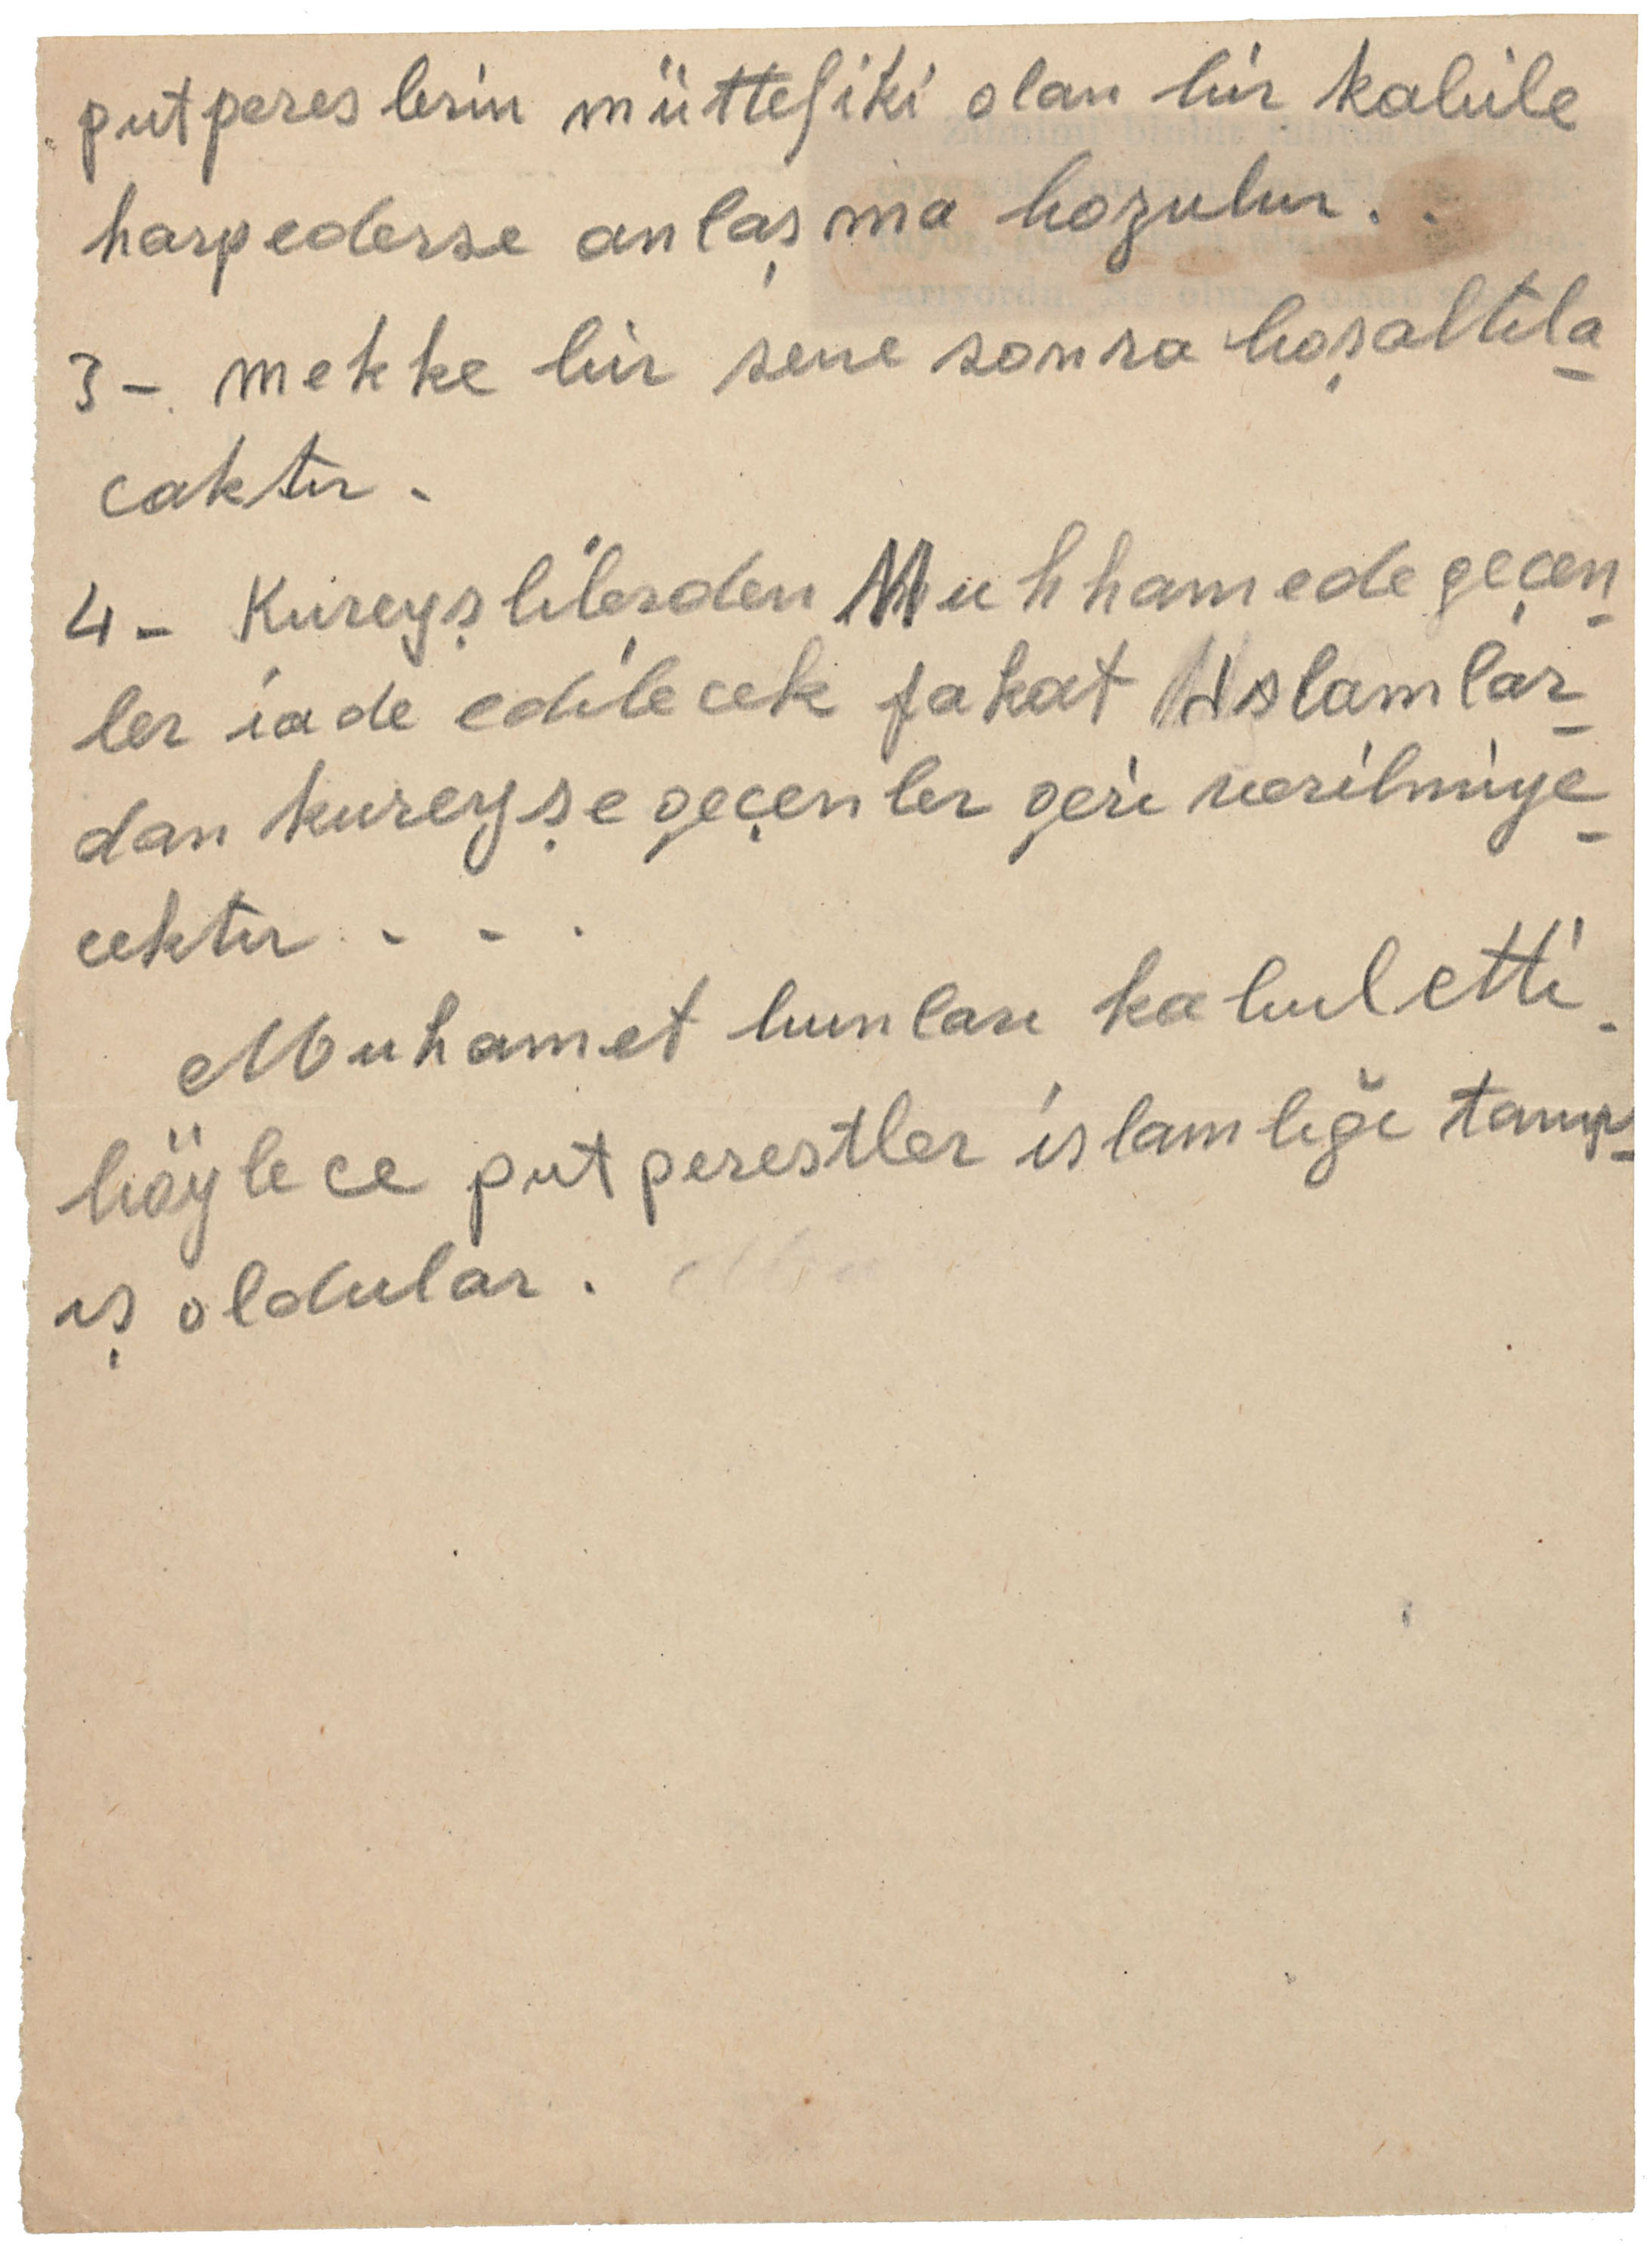 putpereslerin müttefiki olan bir kabile
harpederse anlaşma bozulur..
3-. mekke bir sene sonra boşaltıla-
caktır.
4- Kureyşlilerden Muhhamede geçen-
ler iade edilecek fakat islamlar-
dan kureyşe geçenler geri verilmiye-
cektir . - - .
Muhamet bunları kabul etti.
böylece putperestler islamlığı tanım-
ış oldular.